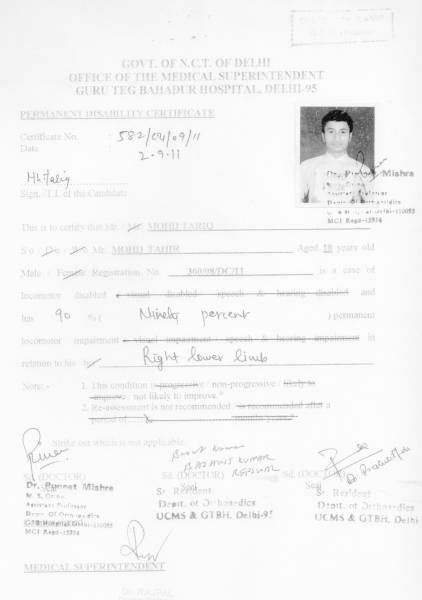 GOVT. OF N.C.T. OF DELHI
OFFICE OF THE MEDICAL SUPERINTENDENT
GURU TEG BAHADUR HOSPITAL, DELHI-95
PERMANENT DISABILITY CERTIFICATE
Certificate No. : 582/04/09/11
Date : 2.9.11
Sign. /T.I. of the Candidate
Dr. Puneet Mishra
M. S. Ortho.
Assistant Professor
Deptt. Of Orthopaedics
MCI Regd-15974
This is to certify that Mr. / Ms. MOHD TARIQ
S/o / D/o / W/o Mr. MOHD TAHIR Aged 18 years old
Male / Female Registration No. 360/08/DC/11 is a case of
locomotor disabled / visual disabled / speech & hearing disabled and
has 90 % ( Ninety percent ) permanent
locomotor impairment / visual impairment / speech & hearing impairment in
relation to his / her Right lower limb
Note:- 1. This condition is progressive / non-progressive / likely to
improve / not likely to improve.*
2. Re-assessment is not recommended / is recommended after a
period of months/years.*
Strike out which is not applicable.
Sd. (DOCTOR) Sd. (DOCTOR) Sd. (DOCTOR)
Seal Seal
Dr. Puneet Mishra
M. S. Ortho.
Assistant Professor
Deptt. Of Orthopaedics
MCI Regd-15974
Sr. Resident
Deptt. of Orthopaedics
UCMS & GTBH, Delhi-95
Sr Resident
Deptt. of Orthopaedics
UCMS & GTBH, Delhi
MEDICAL SUPERINTENDENT